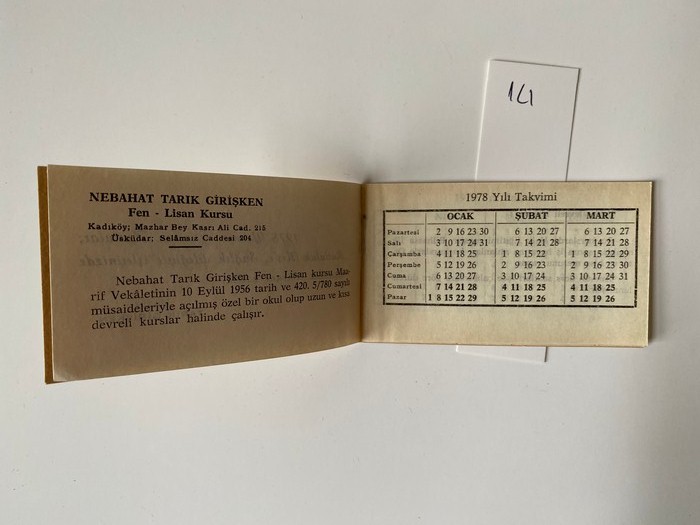 14
NEBAHAT TARIK GİRİŞKEN
Fen - Lisan Kursu
Kadıköy; Mazhar Bey Kasrı Ali Cad. 215
Üsküdar; Selâmsız Caddesi 204
Nebahat Tarık Girişken Fen - Lisan kursu Maa-
rif Vekâletinin 10 Eylül 1956 tarih ve 420. 5/780 sayılı
müsaideleriyle açılmış özel bir okul olup uzun ve kısa
devreli kurslar halinde çalışır.
1978 Yılı Takvimi
OCAK ŞUBAT MART
Pazartesi 2 9 16 23 30 6 13 20 27 6 13 20 27
Salı 3 10 17 24 31 7 14 21 28 7 14 21 28
Çarşamba 4 11 18 25 1 8 15 22 1 8 15 22 29
Perşembe 5 12 19 26 2 9 16 23 2 9 16 23 30
Cuma 6 13 20 27 3 10 17 24 3 10 17 24 31
Cumartesi 7 14 21 28 4 11 18 25 4 11 18 25
Pazar 1 8 15 22 29 5 12 19 26 5 12 19 26